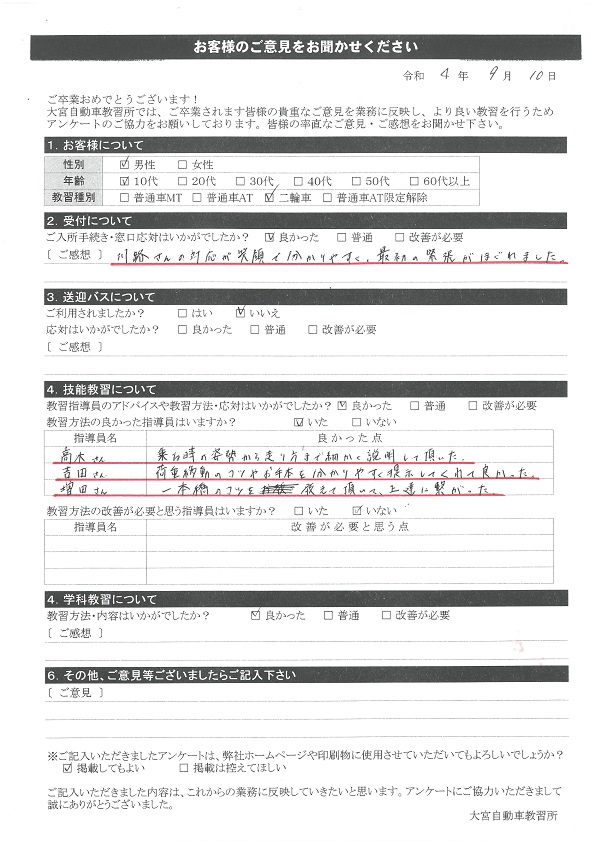 お客様のご意見をお聞かせください
令和 4 年 9 月 10 日
ご卒業おめでとうございます！
大宮自動車教習所では、ご卒業されます皆様の貴重なご意見を業務に反映し、より良い教習を行うため
アンケートのご協力をお願いしております。皆様の率直なご意見・ご感想をお聞かせ下さい。
1. お客様について
性別 ☑ 男性 □ 女性
年齢 ☑ 10代 □ 20代 □ 30代 □ 40代 □ 50代 □ 60代以上
教習種別 □ 普通車MT □ 普通車AT ☑ 二輪車 □ 普通車AT限定解除
2. 受付について
ご入所手続き・窓口応対はいかがでしたか？ ☑ 良かった □ 普通 □ 改善が必要
［ ご感想 ］ 川路さんの対応が笑顔で分かりやすく、最初の緊張がほぐれました。
3. 送迎バスについて
ご利用されましたか？ □ はい ☑ いいえ
応対はいかがでしたか？ □ 良かった □ 普通 □ 改善が必要
［ ご感想 ］
4. 技能教習について
教習指導員のアドバイスや教習方法・応対はいかがでしたか？ ☑ 良かった □ 普通 □ 改善が必要
教習方法の良かった指導員はいますか？ ☑ いた □ いない
指導員名 良かった点
高木さん 乗る時の姿勢から走り方まで細かく説明して頂いた。
吉田さん 荷重移動のコツやお手本を分かりやすく提示してくれて良かった。
増田さん 一本橋のコツを 教えて頂いて、上達に繋がった。
教習方法の改善が必要と思う指導員はいますか？ □ いた ☑ いない
指導員名 改善が必要と思う点
4. 学科教習について
教習方法・内容はいかがでしたか？ ☑ 良かった □ 普通 □ 改善が必要
［ ご感想 ］
6. その他、ご意見等ございましたらご記入下さい
［ ご意見 ］
※ご記入いただきましたアンケートは、弊社ホームページや印刷物に使用させていただいてもよろしいでしょうか？
☑ 掲載してもよい □ 掲載は控えてほしい
ご記入いただきました内容は、これからの業務に反映していきたいと思います。アンケートにご協力いただきまして
誠にありがとうございました。
大宮自動車教習所